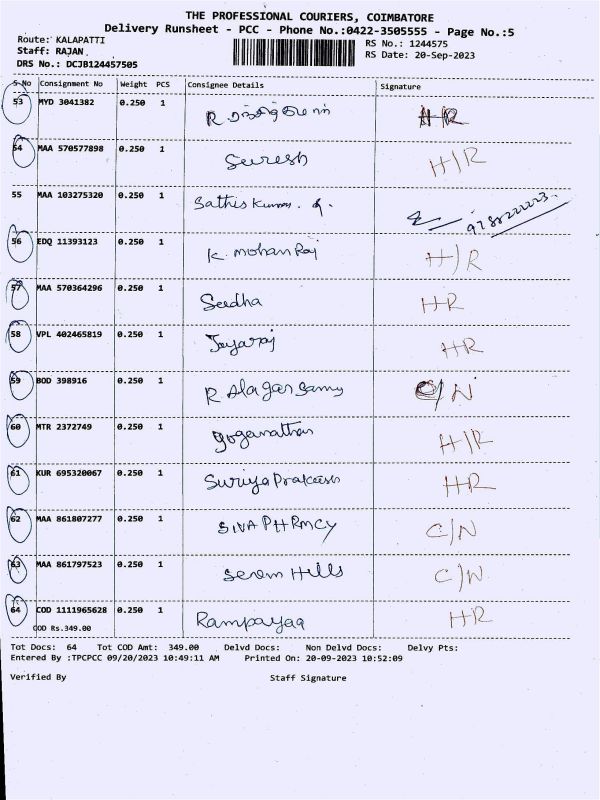 THE PROFESSIONAL COURIERS, COIMBATORE
Delivery Runsheet - PCC - Phone No.:0422-3505555 - Page No.:5
Route: KALAPATTI
Staff: RAJAN
DRS No.: DCJB124457505
RS No.: 1244575
RS Date: 20-Sep-2023
S No Consignment No Weight PCS Consignee Details Signature
53 MYD 3041382 0.250 1 R HR
54 MAA 570577898 0.250 1 Suresh H/R
55 MAA 103275320 0.250 1 Sathis Kumar. 9788222223
56 EDQ 11393123 0.250 1 K. mohan Raj H/R
57 MAA 570364296 0.250 1 Seedha HR
58 VPL 402465819 0.250 1 Jayaraj HR
59 BOD 398916 0.250 1 R Alagarsamy C/N
60 MTR 2372749 0.250 1 yoganathan H/R
61 KUR 695320067 0.250 1 Suriya Prakash HR
62 MAA 861807277 0.250 1 SIVA PHRMCY C/N
63 MAA 861797523 0.250 1 Seven Hills C/N
64 COD 1111965628 0.250 1 Rampayaa HR
COD Rs.349.00
Tot Docs: 64 Tot COD Amt: 349.00 Delvd Docs: Non Delvd Docs: Delvy Pts:
Entered By :TPCPCC 09/20/2023 10:49:11 AM Printed On: 20-09-2023 10:52:09
Verified By Staff Signature